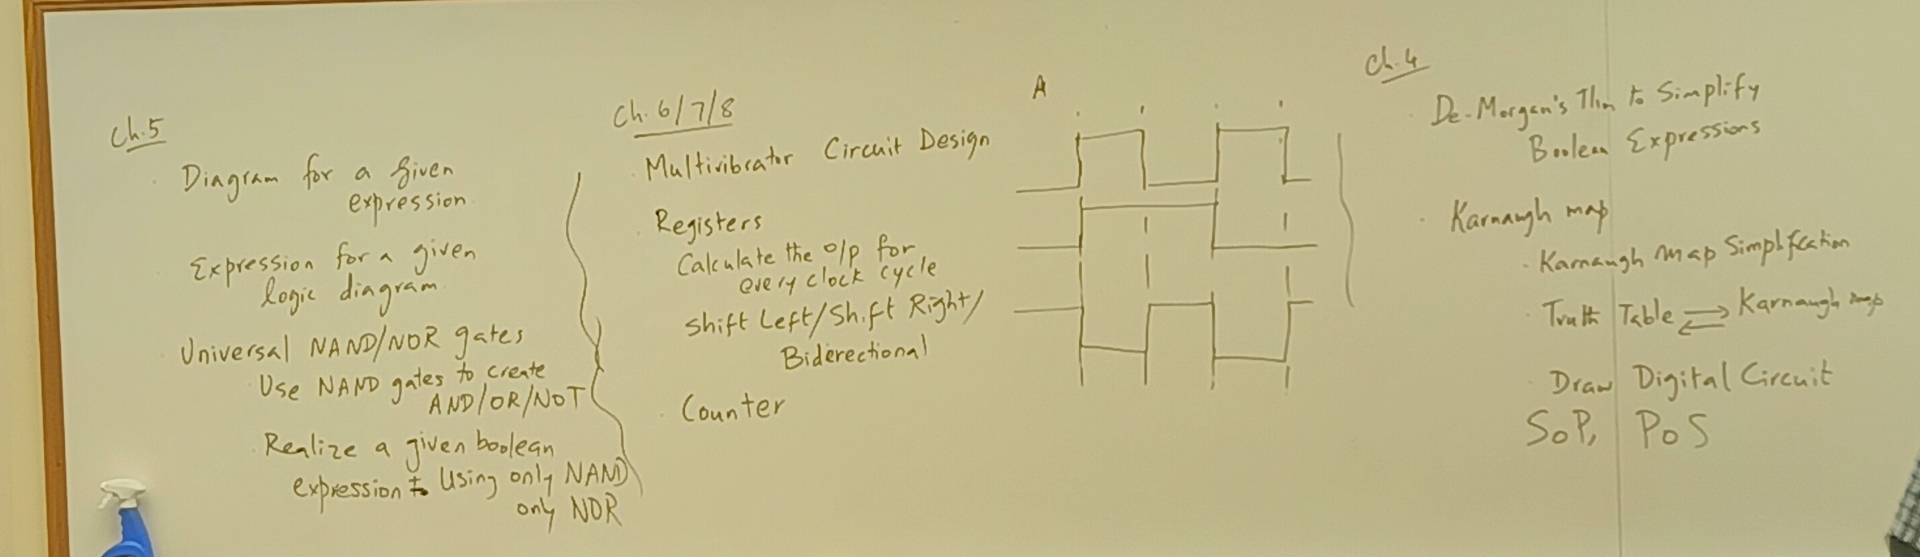 Ch.5
Diagram for a given
expression.
Expression for a given
logic diagram.
Universal NAND/NOR gates
Use NAND gates to create
AND/OR/NOT
Realize a given boolean
expression to Using only NAND
only NOR
Ch. 6/7/8
Multivibrator Circuit Design
Registers
Calculate the o/p for
every clock cycle
Shift Left/Shift Right/
Biderectional
Counter
A
Ch.4
De-Morgan's Thm to Simplify
Boolean Expressions
Karnaugh map
Karnaugh Map Simplification
Truth Table ⇄ Karnaugh map
Draw Digital Circuit
SoP, PoS